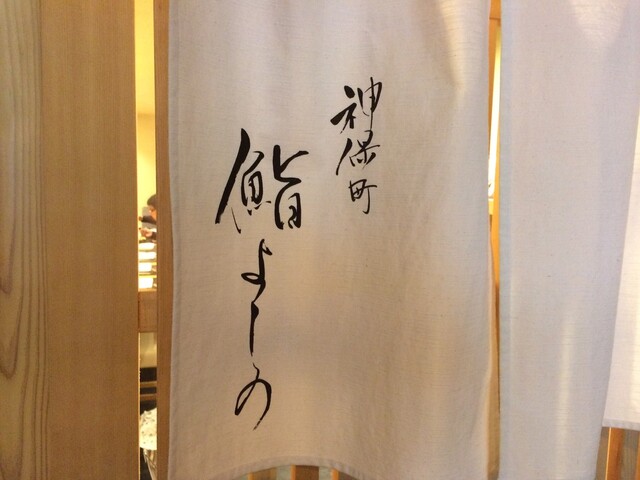 神保町
鮨よしの